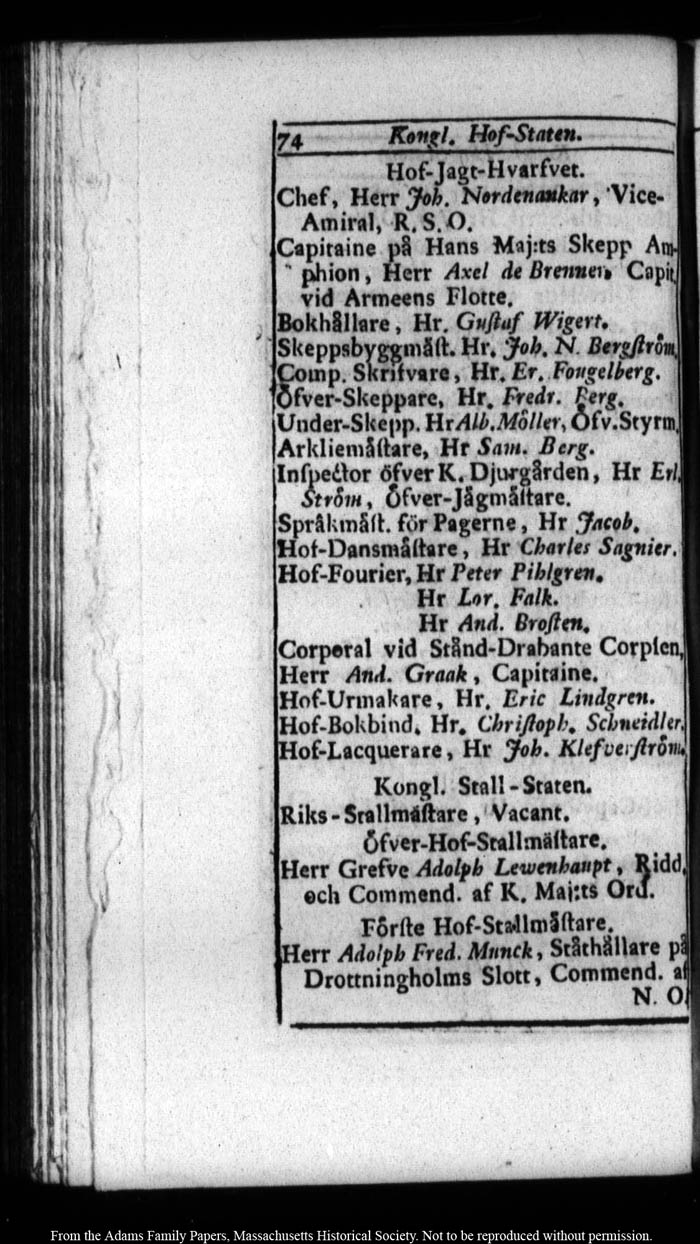 74 Kongl. Hof-Staten.
Hof-Jagt-Hvarfvet.
Chef, Herr Joh. Nordenankar, Vice-
Amiral, R. S. O.
Capitaine på Hans Maj:ts Skepp Am-
phion, Herr Axel de Brenner, Capit.
vid Armeens Flotte.
Bokhållare, Hr. Guſtaf Wigert.
Skeppsbyggmåſt. Hr. Joh. N. Bergſtröm.
Comp. Skrifvare, Hr. Er. Fougelberg.
Öfver-Skeppare, Hr. Fredr. Berg.
Under-Skepp. Hr Alb. Möller, Öfv. Styrm.
Arkliemåſtare, Hr Sam. Berg.
Inſpector öfver K. Djurgården, Hr Erl.
Ström, Öfver-Jågmåſtare.
Språkmåſt. för Pagerne, Hr Jacob.
Hof-Dansmåſtare, Hr Charles Sagnier.
Hof-Fourier, Hr Peter Pihlgren.
Hr Lor. Falk.
Hr And. Broſten.
Corporal vid Stånd-Drabante Corpſen,
Herr And. Graak, Capitaine.
Hof-Urmakare, Hr. Eric Lindgren.
Hof-Bokbind. Hr. Chriſtoph. Schneidler.
Hof-Lacquerare, Hr Joh. Klefverſtröm.
Kongl. Stall-Staten.
Riks-Stallmåſtare, Vacant.
Öfver-Hof-Stallmåſtare.
Herr Grefve Adolph Lewenhaupt, Ridd.
och Commend. af K. Maj:ts Ord.
Förſte Hof-Stallmåſtare.
Herr Adolph Fred. Munck, Ståthållare på
Drottningholms Slott, Commend. af
N. O.
From the Adams Family Papers, Massachusetts Historical Society. Not to be reproduced without permission.